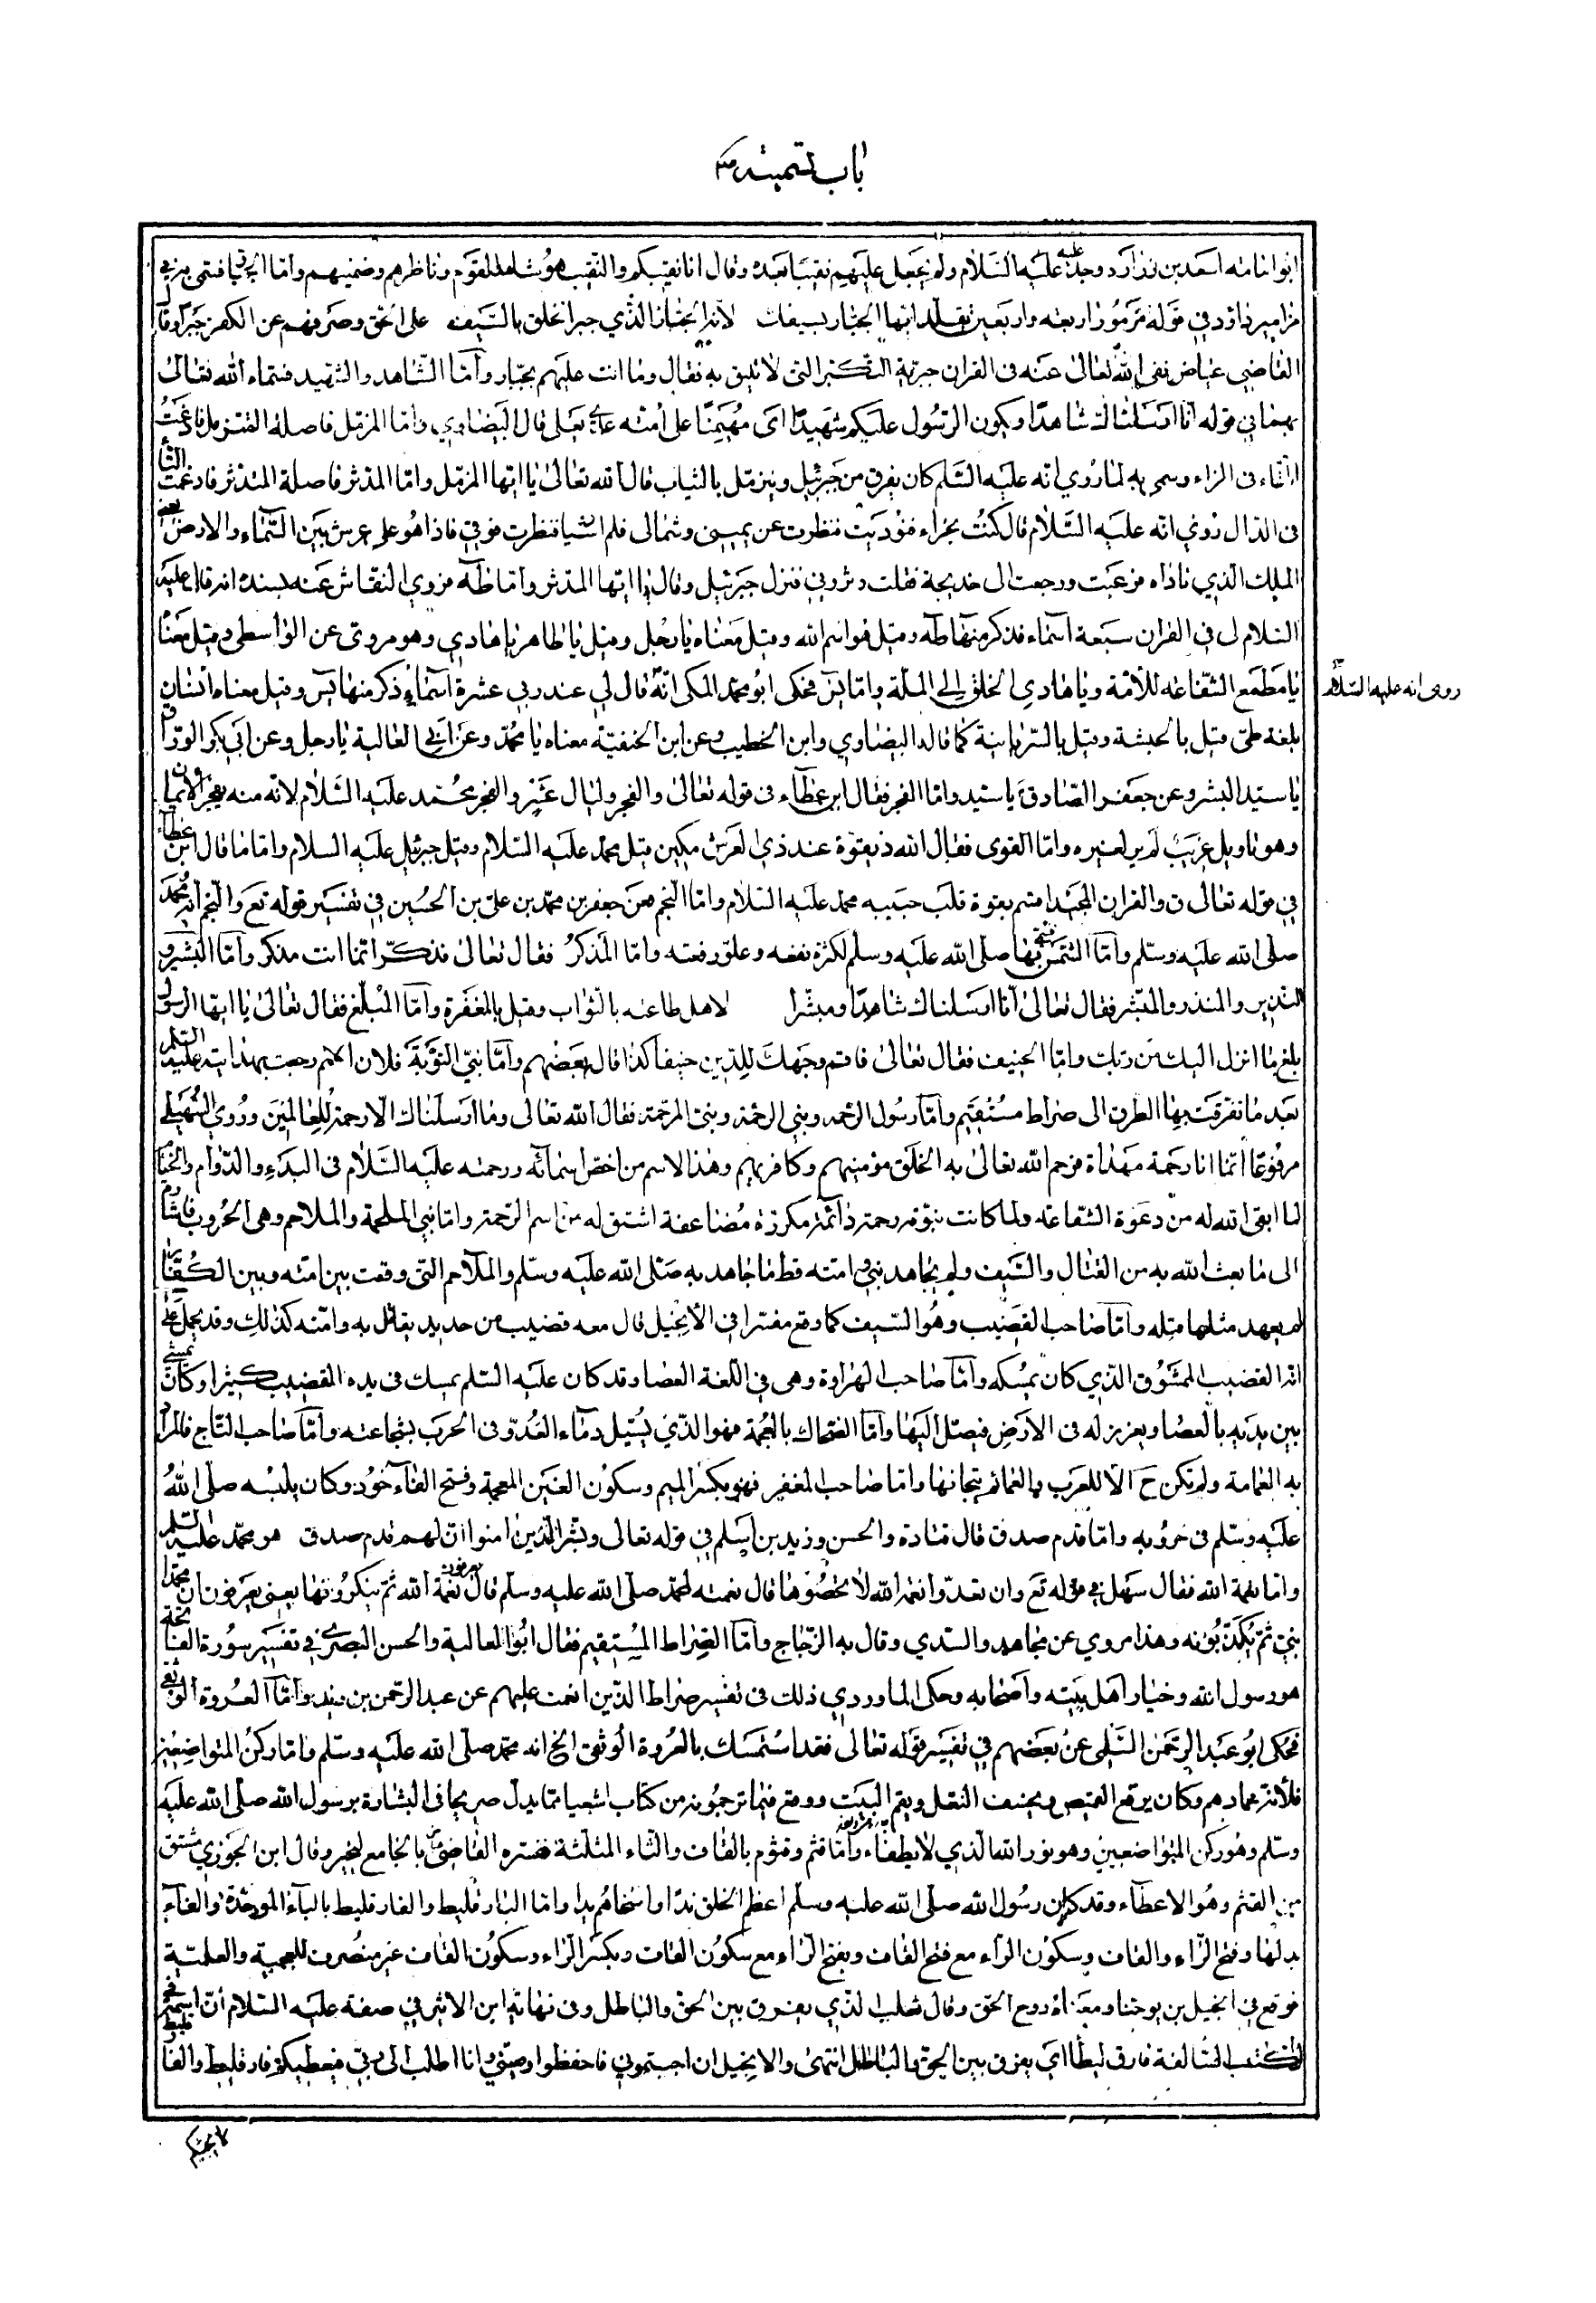 باب تسميته
ابو امامه اسعد بن زرارة وجد عليه عليه السلام ولم يجعل عليهم نقيبا بعده وقال انا نقيبكم والنقيب هو شاهد القوم وناظرهم وضمينهم واما الجبار فسمى به في
مزامير داود في قوله مزمور اربعه واربعين تقلد ايها الجبار سيفك لانه الجبار الذي جبر الخلق بالسيف على الحق وصرفهم عن الكفر جبرا وقال
القاضي عياض نفى الله تعالى عنه في القران جبرية التكبر التي لا تليق به فقال وما انت عليهم بجبار واما الشاهد والشهيد فسماه الله تعالى
بهما في قوله انا ارسلناك شاهدا ويكون الرسول عليكم شهيدا اى مهيمنا على امته قال البيضاوي واما المزمل فاصله المتزمل فادغمت
التاء في الزاء وسمى به لما روي انه عليه السلم كان يفرق من جبرئيل ويتزمل بالثياب قال الله تعالى يا ايها المزمل واما المدثر فاصله المتدثر فادغمت التا
في الدال روي انه عليه السلام قال كنت بحراء فنوديت فنظرت عن يميني وشمالى فلم ار شيا فنظرت فوقي فاذا هو على عرش بين السماء والارض يعنى
الملك الذي ناداه فرعبت ورجعت الى خديجة فقلت دثروني فنزل جبرئيل وقال يا ايها المدثر واما طه فروي النقاش عنه بسنده انه قال عليه
السلام لى في القران سبعة اسماء فذكر منها طه وقيل هو اسم الله وقيل معناه يا رجل وقيل يا طاهر يا هادي وهو مروى عن الواسطى وقيل معناه
يا مطمع الشفاعه للامة ويا هادي الخلق الى الملة واما يس فحكى ابو محمد المكى انه قال لي عند ربي عشرة اسماء ذكر منها يس وقيل معناه انسان
روى انه عليه السلام
بلغة طى قيل بالحبشة وقيل بالسريانية كما قاله البيضاوي وابن الخطيب وعن ابن الحنفية معناه يا محمد وعن ابي العالية يا رجل وعن ابي بكر الوراق
يا سيد البشر وعن جعفر الصادق يا سيد واما الفجر فقال ابن عطاء في قوله تعالى والفجر وليال عشر والفجر محمد عليه السلام لانه منه يفجر الايمان
وهو تاويل غريب لم ير لغيره واما القوى فقال الله ذي قوة عند ذي العرش مكين قيل محمد عليه السلام وقيل جبرئيل عليه السلام واما ما قال ابن عطاء
في قوله تعالى ق والقران المجيد اقسم بقوة قلب حبيبه محمد عليه السلام واما النجم فعن جعفر بن محمد بن على بن الحسين في تفسير قوله تع والنجم انه محمد
صلى الله عليه وسلم واما الشمس فسمي بها صلى الله عليه وسلم لكثرة نفعه وعلو رفعته واما المذكر فقال تعالى فذكر انما انت مذكر واما البشير و
النذير والمنذر والمبشر فقال تعالى انا ارسلناك شاهدا ومبشرا لاهل طاعته بالثواب وقيل بالمغفرة واما المبلغ فقال تعالى يا ايها الرسول
بلغ ما انزل اليك من ربك واما الحنيف فقال تعالى فاقم وجهك للدين حنيفا كذا قال بعضهم واما نبي التوبة فلان الامم رجعت بهدايته عليه السلم
بعد ما تفرقت بها الطرق الى صراط مستقيم واما رسول الرحمه ونبي الرحمة ونبي المرحمة فقال الله تعالى وما ارسلناك الا رحمة للعالمين وروي البيهقي
مرفوعا انما انا رحمة مهداة فرحم الله تعالى به الخلق مؤمنهم وكافرهم وهذا الاسم من اخص اسمائه ورحمته عليه السلام في البدء والدوام والختام
لما ابقى الله له من دعوة الشفاعة ولما كانت نبوته رحمة دائمة مكررة مضاعفة اشتق له من اسم الرحمة واما نبي الملحمة والملاحم وهى الحروب فاشارة
الى ما بعث الله به من القتال والسيف ولم يجاهد نبي وامته قط ما جاهد به صلى الله عليه وسلم والملاحم التي وقعت بين امته وبين الكفار
لم يعهد مثلها قبله واما صاحب القضيب وهو السيف كما وقع مفسرا في الانجيل قال معه قضيب من حديد يقاتل به وامته كذلك وقد يحمل على
انه القضيب الممشوق الذي كان يمسكه واما صاحب الهراوة وهى في اللغة العصا وقد كان عليه السلم يمسك في يده القضيب كثيرا وكان يمشى
بين يديه بالعصا ويغرز له في الارض فيصلى اليها واما الضحاك بالعجمة فهو الذي يسيل دماء العدو في الحرب بشجاعته واما صاحب التاج فالمراد
به العمامة ولم تكن ح الا للعرب والعمائم تيجانها واما صاحب المغفر فهو بكسر الميم وسكون الغين المعجمة وفتح الفاء خود وكان يلبسه صلى الله
عليه وسلم في حروبه واما قدم صدق قال قتادة والحسن وزيد بن اسلم في قوله تعالى وبشر الذين امنوا ان لهم قدم صدق هو محمد عليه السلم
واما نعمة الله فقال سهل في قوله تع وان تعدوا نعمة الله لا تحصوها قال نعمته لمحمد صلى الله عليه وسلم قال يعرفون نعمة الله ثم ينكرونها يعنى يعرفون ان محمدا
نبي ثم يكذبونه وهذا مروي عن مجاهد والسدي وقال به الزجاج واما الصراط المستقيم فقال ابو العالية والحسن البصري في تفسير سورة الفاتحة
هو رسول الله وخيار اهل بيته واصحابه وحكى الماوردي ذلك في تفسير صراط الذين انعمت عليهم عن عبد الرحمن بن زيد واما العروة الوثقى
فحكى ابو عبد الرحمن السلمى عن بعضهم في تفسير قوله تعالى فقد استمسك بالعروة الوثقى الخ انه محمد صلى الله عليه وسلم واما ركن المتواضعين
فلانه عمادهم وكان يرقع القميص ويخصف النعل ويقم البيت ووقع فيما ترجموه من كتاب اشعيا مما يدل صريحا في البشارة برسول الله صلى الله عليه
وسلم وهو ركن المتواضعين وهو نور الله الذي لا يطفاء واما قثم وقثوم بالقاف والثاء المثلثة ففسره القاضي عياض بالجامع للخير وقال ابن الجوزي مشتق
من القثم وهو الاعطاء وقد كان رسول الله صلى الله عليه وسلم اعظم الخلق ندا واسخاهم يدا واما البارقليط والفارقليط بالباء الموحدة والفاء
بدلها وفتح الراء والقاف وسكون الراء مع فتح القاف وبفتح الراء مع سكون القاف وبكسر الراء وسكون القاف غير منصرف للعجمية والعلمية
فوقع في انجيل بن يوحنا ومعناه روح الحق وقال ثعلب الذي يفرق بين الحق والباطل وفي نهاية ابن الاثير في صفة عليه السلام ان اسمه في
الكتب السالفة فارق ليطا اي يفرق بين الحق والباطل انتهى والانجيل ان احببتموني فاحفظوا وصيتي وانا اطلب الى ربي فيعطيكم فارقليط والفا